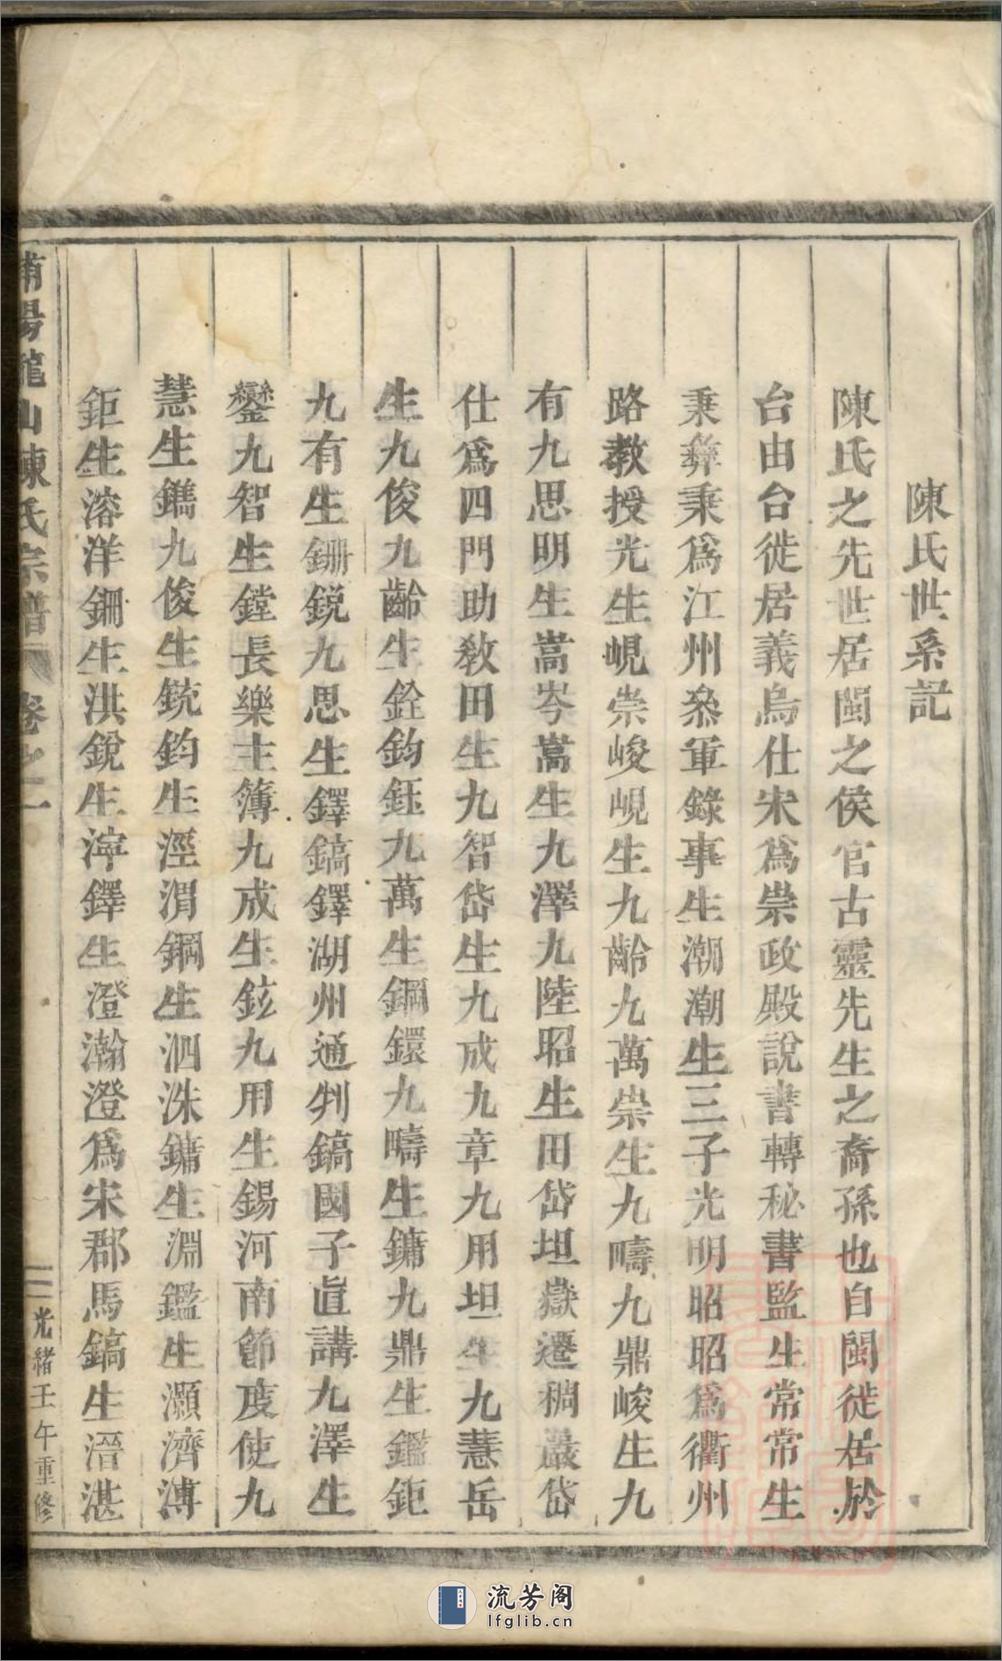 陳氏世系記
陳氏之先世居閩之侯官古靈先生之裔孫也自閩徙居於
台由台徙居義烏仕宋爲崇政殿說書轉秘書監生常常生
秉彝秉爲江州叅軍錄事生潮潮生三子光明昭昭爲衢州
路教授光生峴崇峻峴生九齡九萬崇生九疇九鼎峻生九
有九思明生嵩岑嵩生九澤九陸昭生田岱坦嶽遷稠巖岱
仕爲四門助敎田生九智岱生九成九章九用坦生九慧岳
生九俊九齡生銓鈞鈺九萬生鋼鐶九疇生鏞九鼎生鑑鉅
九有生鉶鋭九思生鐸鎬鐸湖州通判鎬國子直講九澤生
鑾九智生鏜長樂主簿九成生鉉九用生錫河南節度使九
慧生鐫九俊生銃鈞生涇渭鋼生泗洙鏞生淵鑑生灝濟溥
鉅生溶洋鉶生洪銳生濘鐸生澄瀚澄爲宋郡馬鎬生溍湛
南陽龍山陳氏宗譜 卷之一 二 光緒壬午重修
流芳阁
lfglib.cn